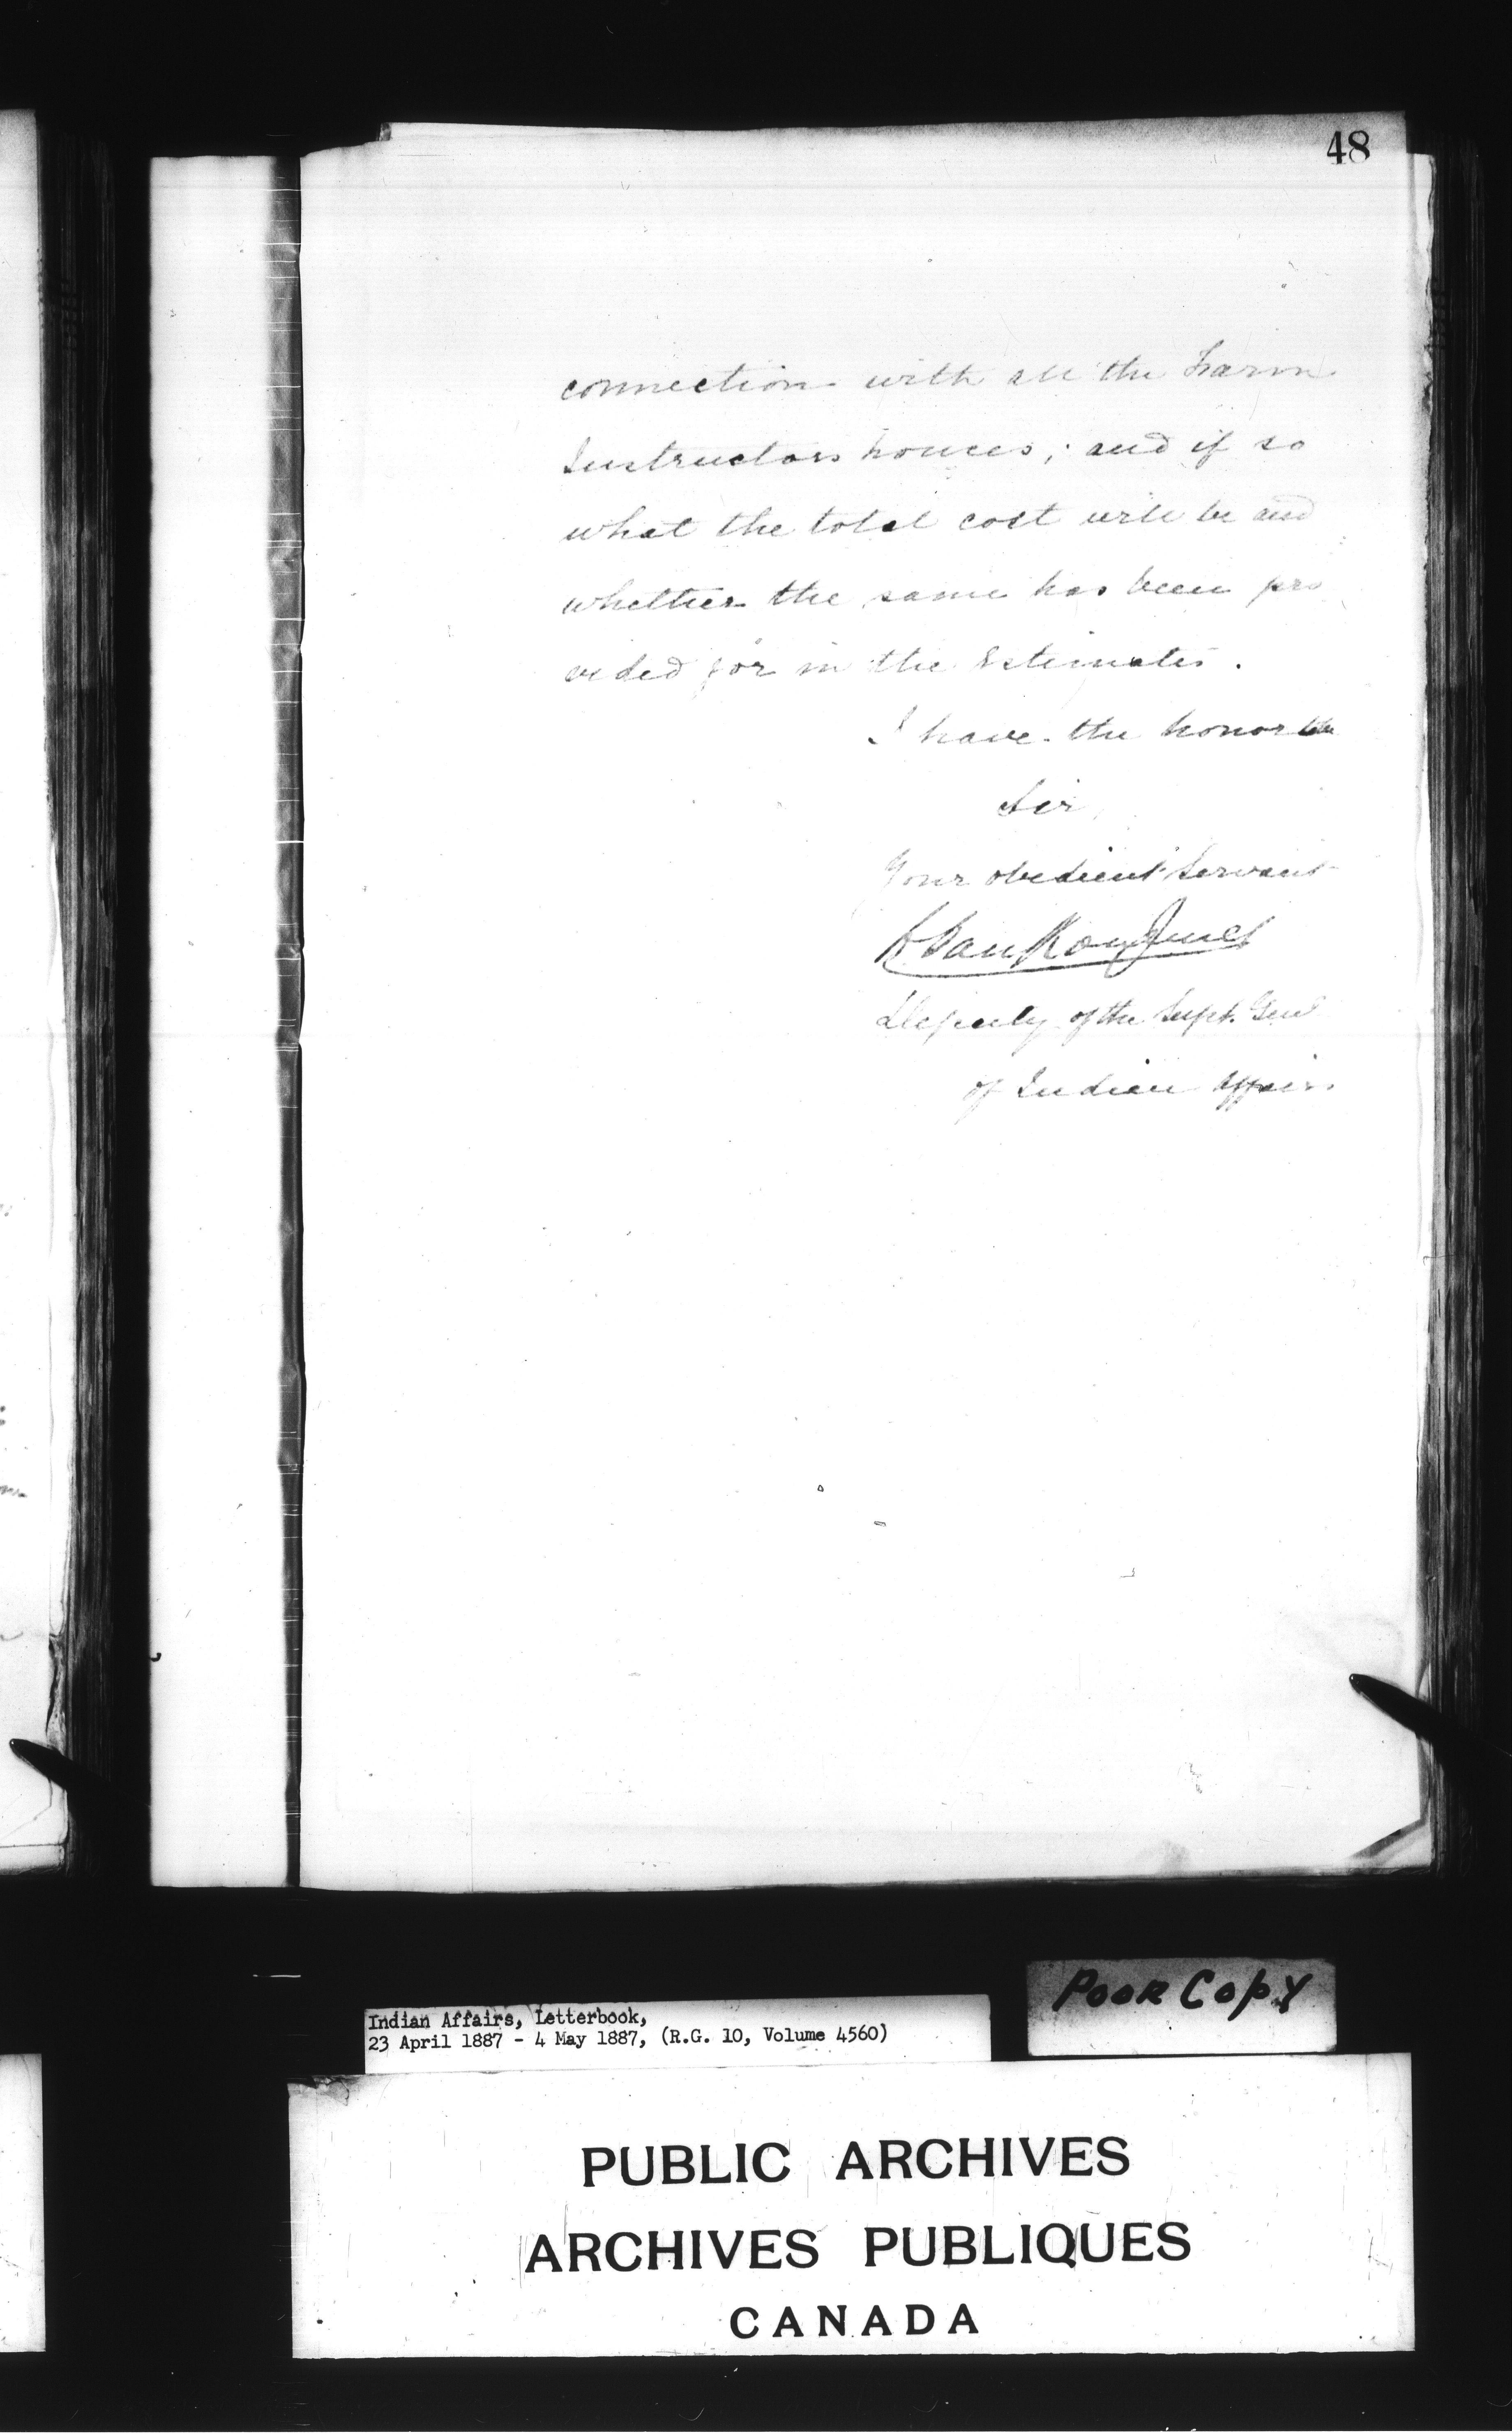 48
connection with all the Farm
Instructors houses; and if so
what the total cost will be and
whether the same has been pro
vided for in the Estimates.
I have the honor to be
Sir,
Your obedient Servant
L. VanKoughnet
Deputy of the Supt. Genl
of Indian Affairs
Poor Copy
Indian Affairs, Letterbook,
23 April 1887 - 4 May 1887, (R.G. 10, Volume 4560)
PUBLIC ARCHIVES
ARCHIVES PUBLIQUES
CANADA